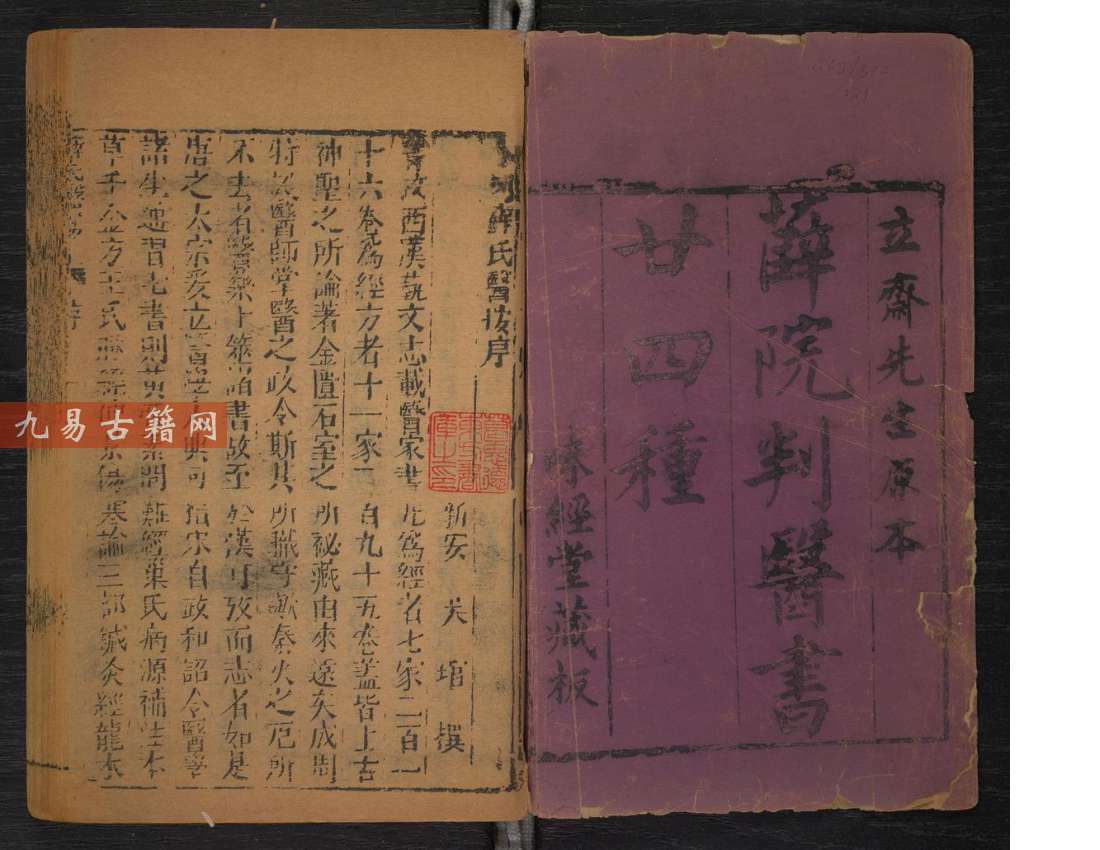 立齋先生原本
薛院判醫書
廿四種
經堂藏板
薛氏醫按序
新安 吳 琯 撰
西漢藝文志載醫家書 凡爲經者七家二百一
十六卷爲經方者十一家二百九十五卷蓋皆上古
神聖之所論著金匱石室之所祕藏由來遠矣成周
特設醫師掌醫之政令斯其所職守歟秦火之厄所
不去者醫藥卜筮諸書故至於漢可攷而志者如是
唐之太宗 立醫 宋自政和詔令醫學
諸生 習七書則黃 素問難經巢氏病源補注本
草千金方王氏 寒論三部鍼灸經龍木
九易古籍网